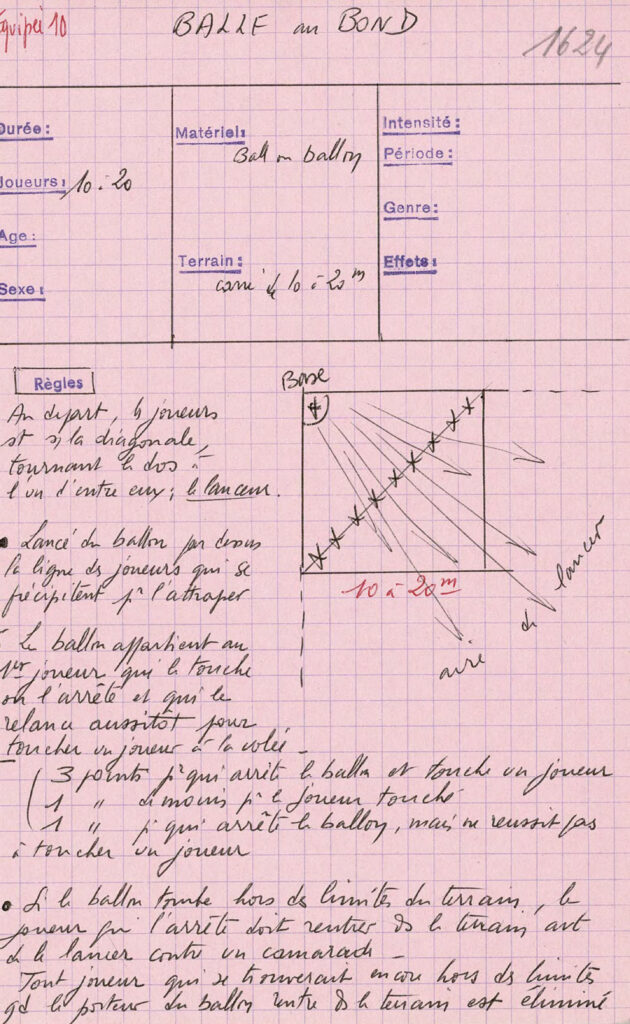 Equipée 10
BALLE au BOND
1624
Durée :
Joueurs : 10 à 20
Age :
Sexe :
Matériel :
Ball ou ballon
Terrain :
carré de 10 à 20 m
Intensité :
Période :
Genre :
Effets :
Règles
Au départ, les joueurs
st s/ la diagonale,
tournant le dos à
l'un d'entre eux ; le lanceur.
• Lancé du ballon par dessus
la ligne des joueurs qui se
précipitent pr l'attraper
- Le ballon appartient au
1er joueur qui le touche
ou l'arrête et qui le
relance aussitot pour
toucher un joueur à la volée -
3 points pr qui arrête le ballon et touche un joueur
1 " de moins pr le joueur touché
1 " pr qui arrête le ballon, mais ne reussit pas
à toucher un joueur
• Si le ballon tombe hors des limites du terrain, le
joueur qui l'arrête doit rentrer ds le terrain avt
de le lancer contre un camarade -
Tout joueur qui se trouverait encore hors des limites
qd le porteur du ballon rentre ds le terrain est éliminé
Base
10 à 20 m
aire de lancer